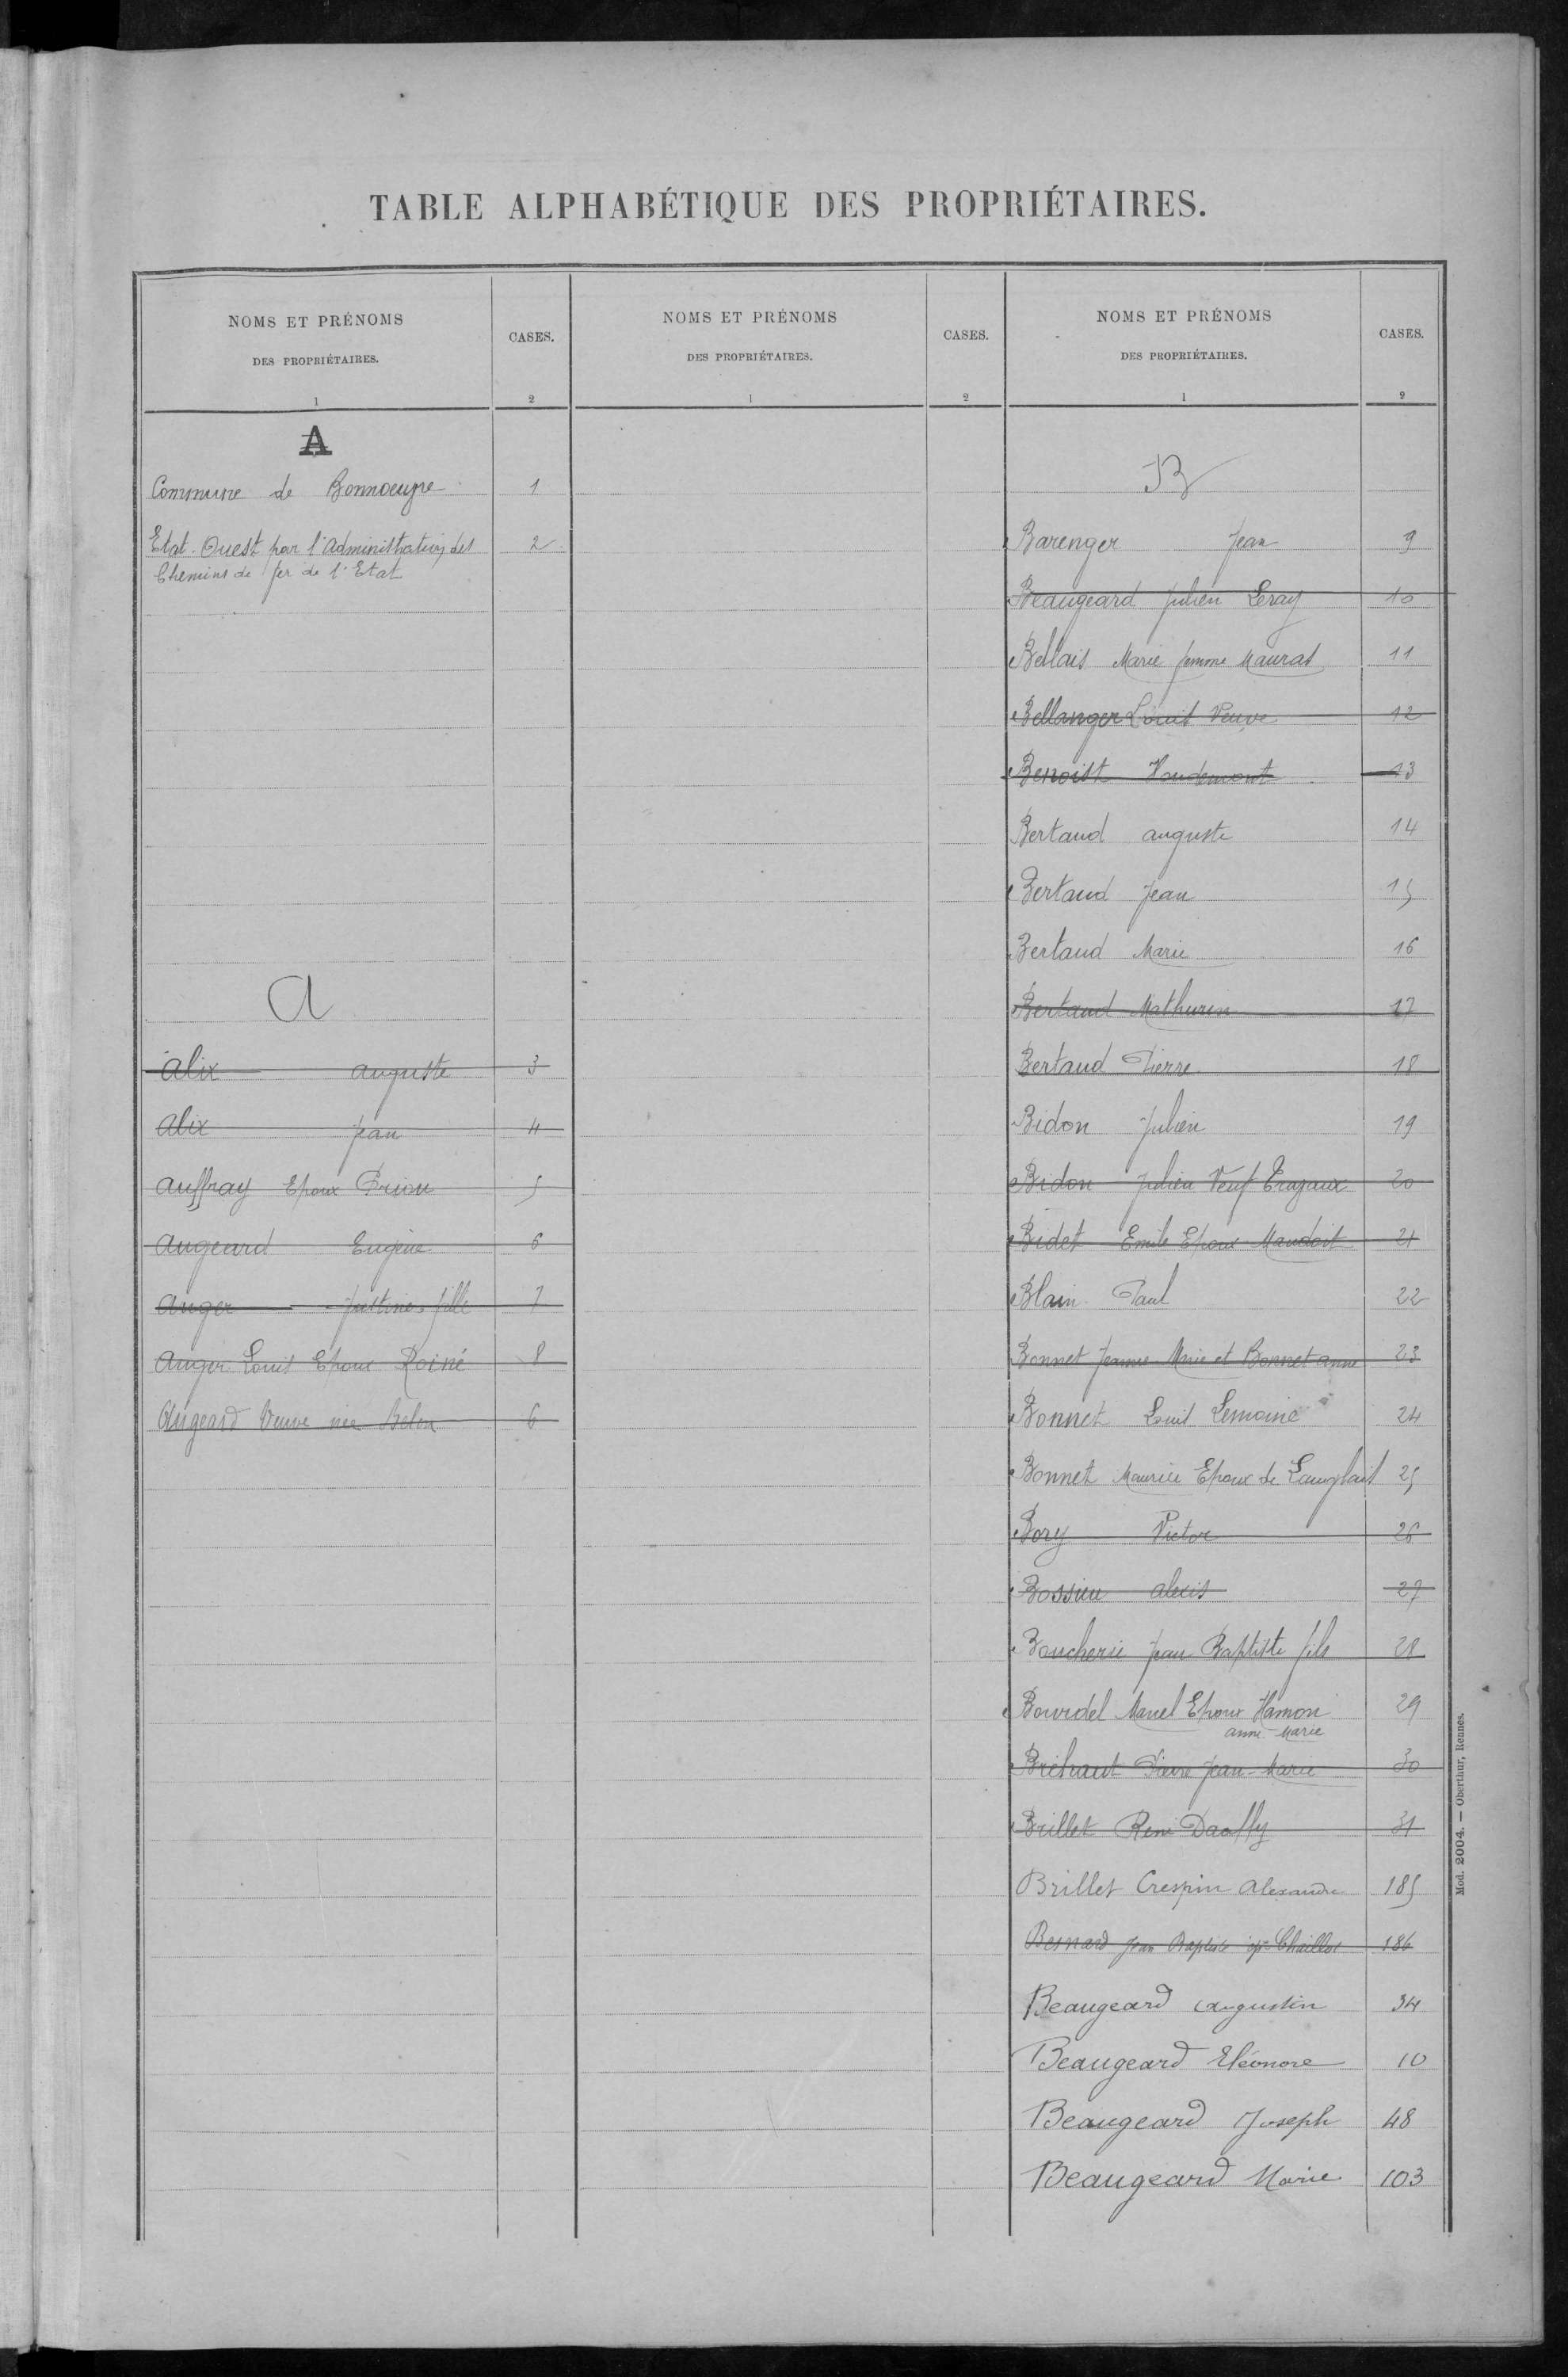 TABLE ALPHABÉTIQUE DES PROPRIÉTAIRES.
NOMS ET PRÉNOMS
DES PROPRIÉTAIRES.
1
CASES.
2
A
Commune de Bonnoeuvre 1
Etat-Ouest par l'Administration des 2
Chemins de fer de l'Etat
A
Alix auguste 3
Alix Jean 4
Auffray Epoux Priou 5
Augeard Eugène 6
Auger Justine fille 7
Auger Louis Epoux Roiné 8
Augeard Veuve née 6
NOMS ET PRÉNOMS
DES PROPRIÉTAIRES.
1
CASES.
2
NOMS ET PRÉNOMS
DES PROPRIÉTAIRES.
1
CASES.
2
B
Barenger Jean 9
Beaugeard Julien Leray 10
Bellais Marie femme Mauras 11
Bellanger Louis Veuve 12
Benoist 13
Bertaud auguste 14
Bertaud Jean 15
Bertaud Marie 16
Bertaud Mathurin 17
Bertaud Pierre 18
Bidon Julien 19
Bidon Julien Veuf 20
Bidet Emile Epoux 21
Blain Paul 22
Bonnet Jeanne-Marie et Bonnet anne 23
Bonnet Louis Lemoine 24
Bonnet Maurice Epoux de Langlais 25
Bory Victor 26
Bossieu alexis 27
Boucherie Jean Baptiste fils 28
Bourdel Manuel Epoux Hamon 29
anne-Marie
Bréhaut Pierre Jean-Marie 30
Brillet René 31
Brillet Crespin Alexandre 185
Besnard Jean Baptiste ép. Chaillot 186
Beaugeard Augustin 34
Beaugeard Eléonore 10
Beaugeard Joseph 48
Beaugeard Marie 103
Mod. 2004. — Oberthur, Rennes.